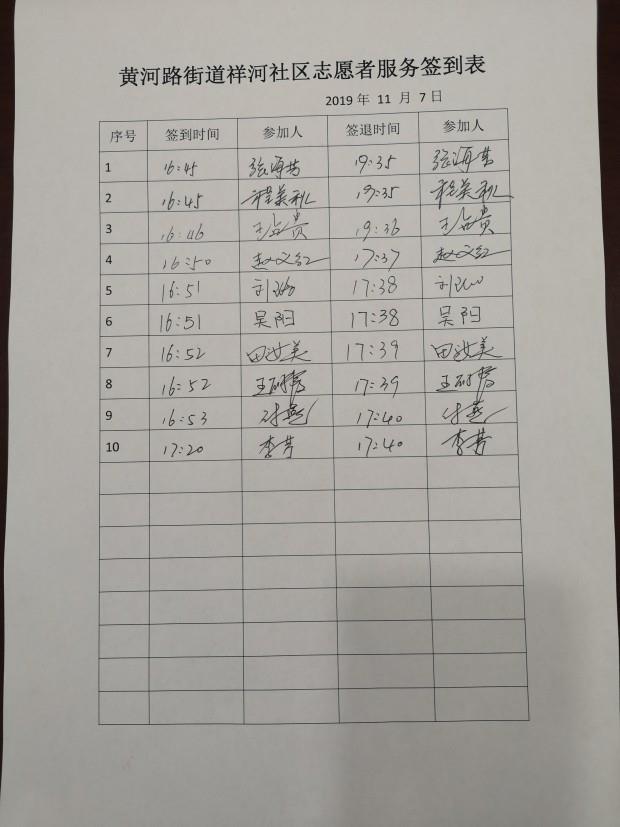 黄河路街道祥河社区志愿者服务签到表
2019 年 11 月 7 日
序号 签到时间 参加人 签退时间 参加人
1 16:45 张海芸 19:35 张海芸
2 16:45 程美礼 19:35 程美礼
3 16:46 王占贵 19:36 王占贵
4 16:50 赵文红 17:37 赵文红
5 16:51 刘 17:38 刘
6 16:51 吴阳 17:38 吴阳
7 16:52 田汝美 17:39 田汝美
8 16:52 王 17:39 王
9 16:53 付燕 17:40 付燕
10 17:20 李芳 17:40 李芳